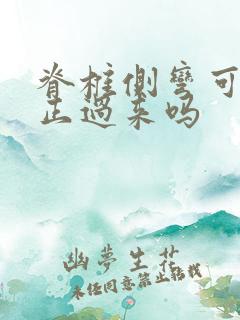 脊柱侧弯可
正过来吗
幽夢生花
未经同意禁止转载